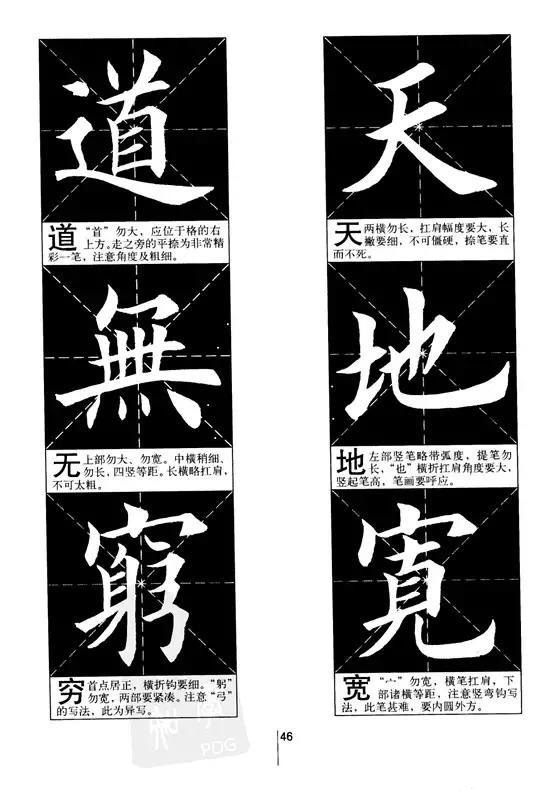 天
天 两横勿长，扛肩幅度要大，长
撇要细，不可僵硬，捺笔要直
而不死。
地
地 左部竖笔略带弧度，提笔勿
长，“也”横折扛肩角度要大，
竖起笔高，笔画要呼应。
寛
宽 “宀”勿宽，横笔扛肩，下
部诸横等距，注意竖弯钩写
法，此笔甚难，要内圆外方。
道
道 “首”勿大，应位于格的右
上方。走之旁的平捺为非常精
彩一笔，注意角度及粗细。
無
无 上部勿大、勿宽。中横稍细、
勿长，四竖等距。长横略扛肩，
不可太粗。
窮
穷 首点居正，横折钩要细。“躬”
勿宽，两部要紧凑。注意“弓”
的写法，此为异写。
PDG
46